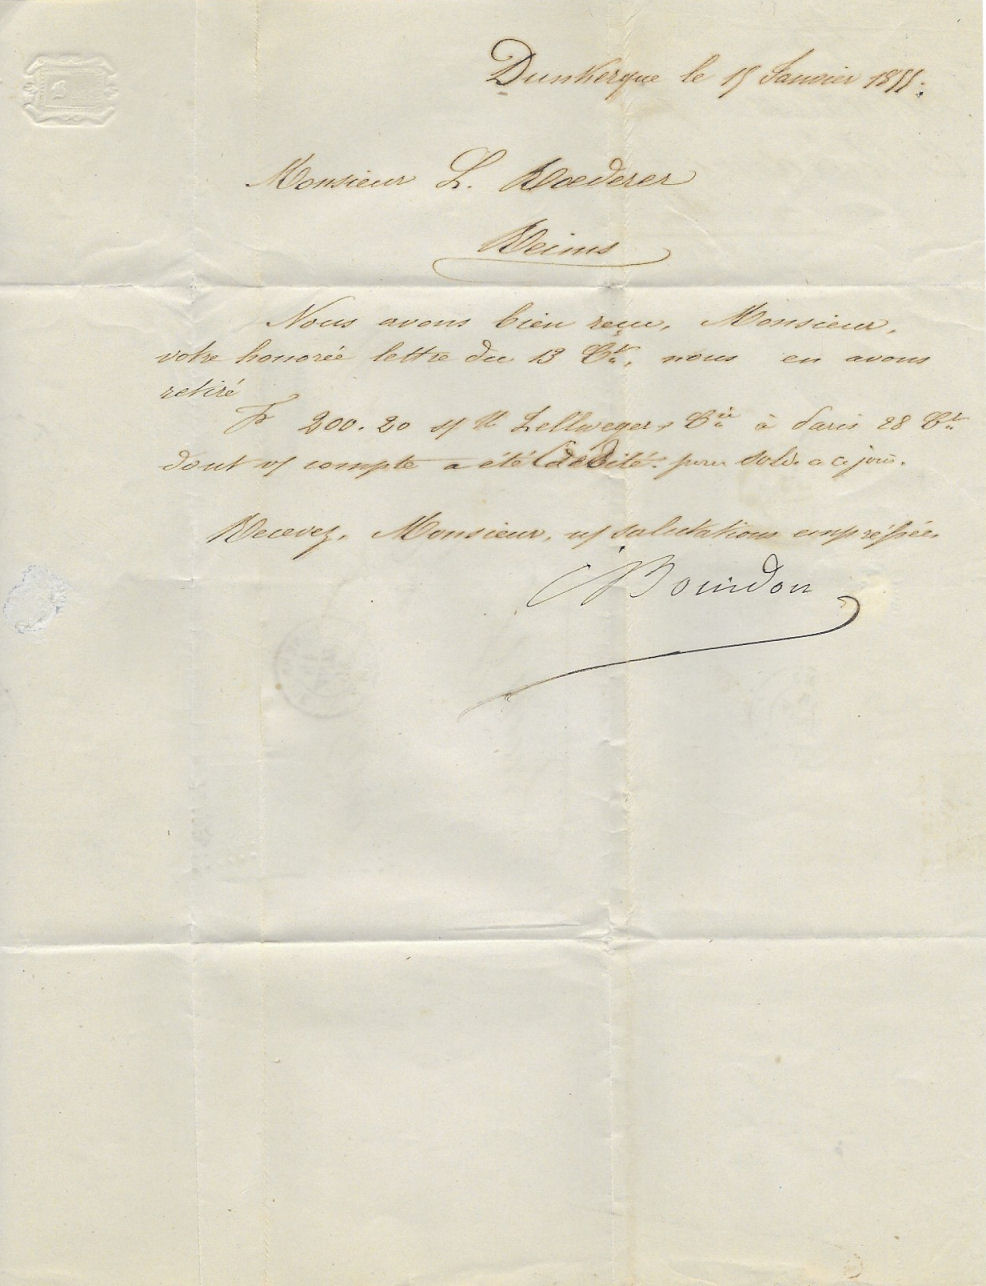 Dunkerque le 15 Janvier 1855.
Monsieur L. Roederer
Reims
Nous avons bien reçu, Monsieur,
votre honorée lettre du 13 Ct, nous en avons
retiré
Fr 200.20 s/ Zellweger & Cie à Paris 28 Ct
dont v/ compte a été crédité pour solde a ce jour.
Recevez, Monsieur, n/ salutations empressées.
Bourdon